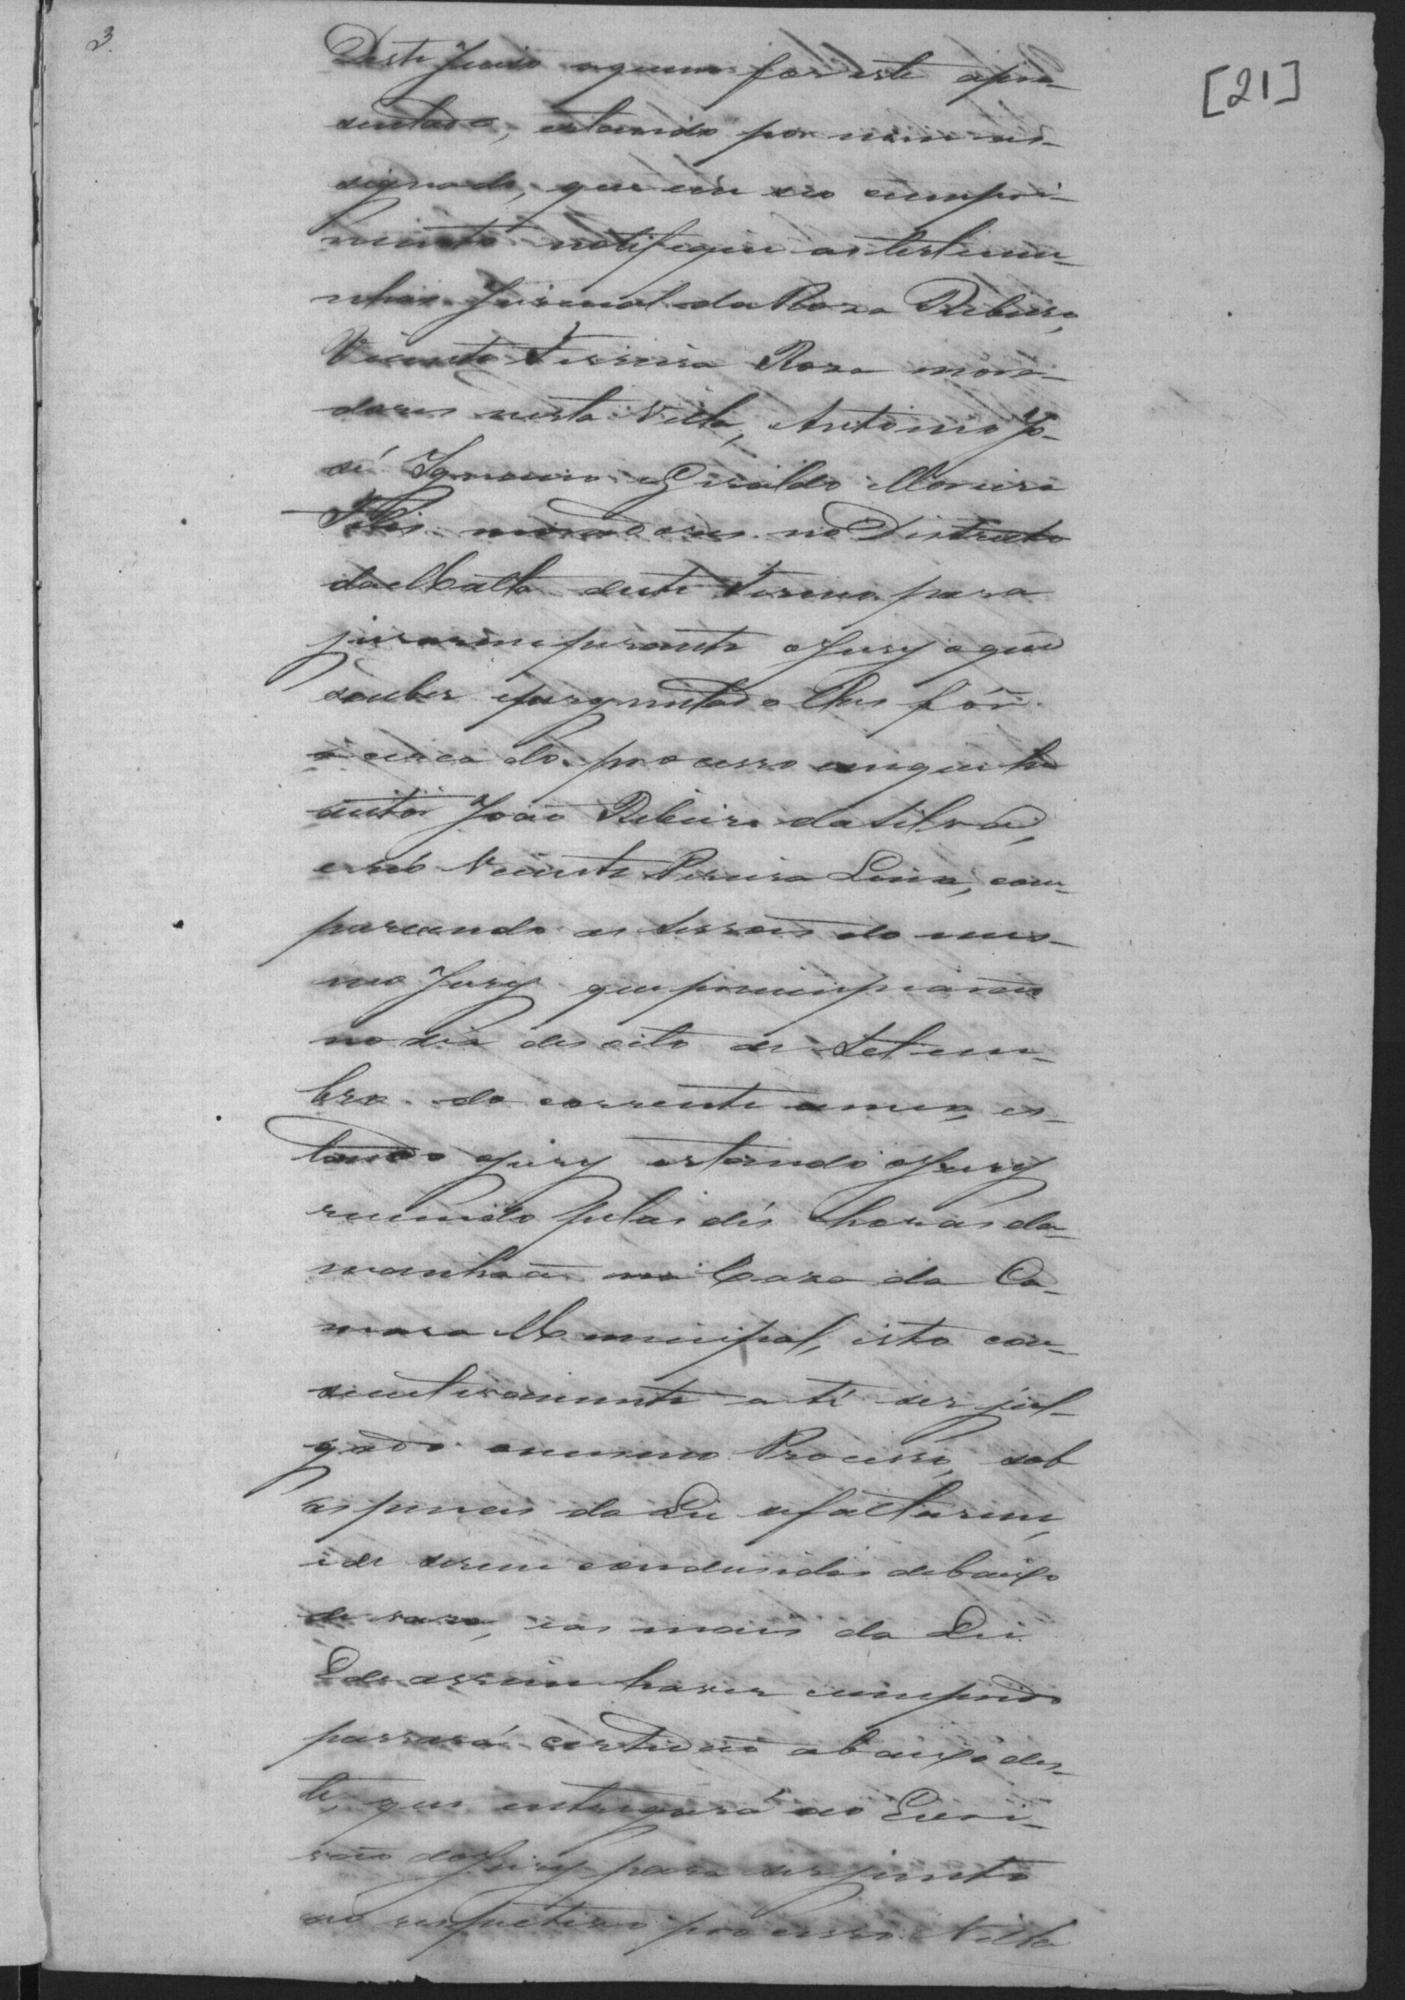 3.
[21]
Deste Juiso aquem for este apre-
sentado, estando por mim as-
signado, que em seo cumpri-
mento notifique as testemu-
nhas Juvenal da Roza Ribeiro,
Vicente Ferreira Roza mora-
dores nesta Villa, Antonio Jo-
sé Ignacio e Giraldo Moreira
moradores no Districto
da Matta deste Termo para
jurarem perante o Jury o que
souber e perguntado lhes fôr
a cerca do processo em que he
autôr João Ribeiro da Silva,
e reó Vicente Pereira Lima, com-
parecendo as Sessões do mes-
mo Jury que principiarão
no dia desoito de Setem-
bro do corrente anno, es-
tando o jury estando o Jury
reunido pelas dés horas da
manhãa na Caza da Ca-
mara Municipal, isto con-
secutivamente a té ser jul-
gado o mesmo Processo, sob
as penas da Lei se faltarem,
e de serem condusidos debaixo
de vara, e as mais da Lei.
E de assim haver cumprido
passará certidão abaixo des-
te, que entregará ao Escri-
vão do Jury para ser junto
ao respectivo processo. Villa